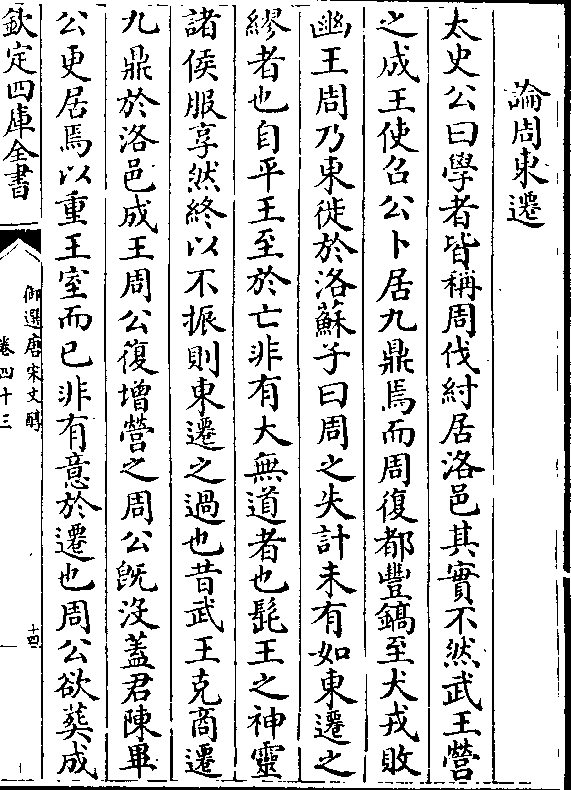 論周東遷
太史公曰學者皆稱周伐紂居洛邑其實不然武王營
之成王使召公卜居九鼎焉而周復都豐鎬至犬戎敗
幽王周乃東徙於洛蘇子曰周之失計未有如東遷之
繆者也自平王至於亡非有大無道者也髭王之神靈
諸侯服享然終以不振則東遷之過也昔武王克商遷
九鼎於洛邑成王周公復增營之周公旣沒蓋君陳畢
公更居焉以重王室而已非有意於遷也周公欲葬成
欽定四庫全書
御選唐宋文醇
卷四十三
十四